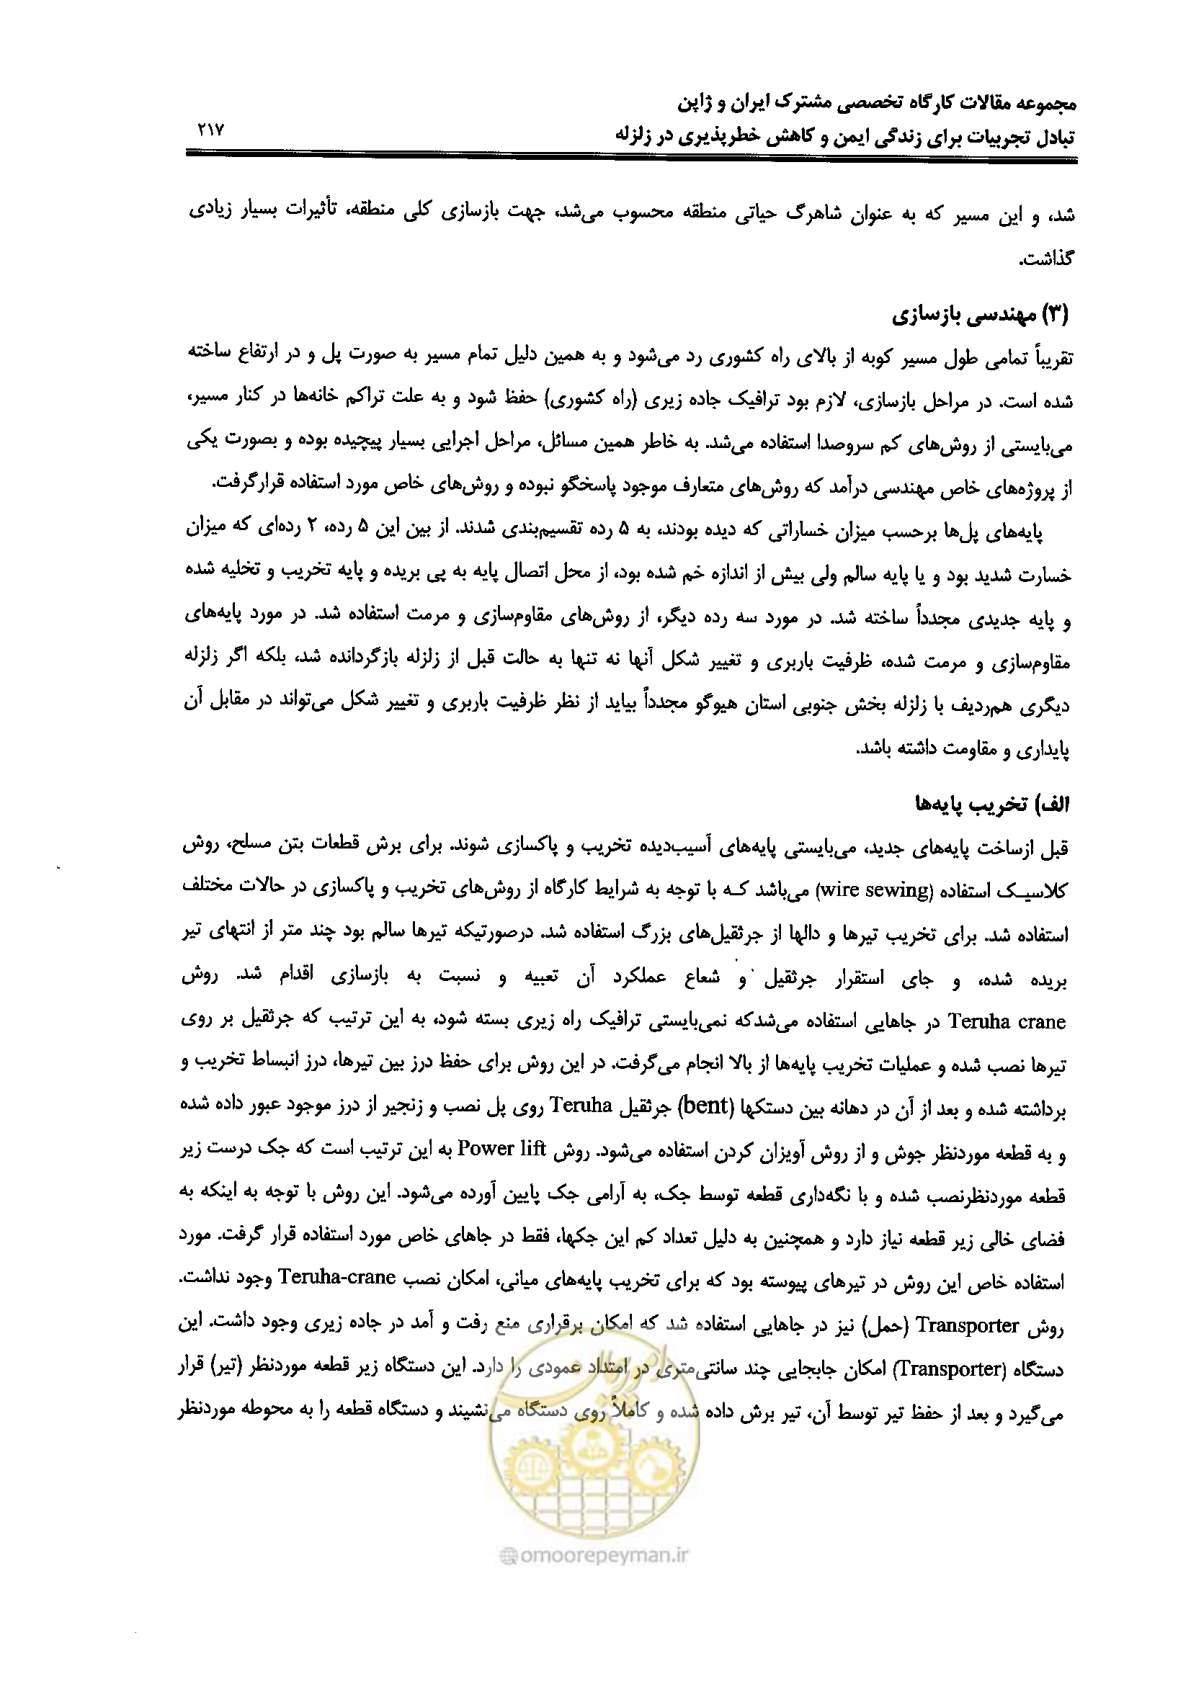 مجموعه مقالات کارگاه تخصصی مشترک ایران و ژاپن
تبادل تجربیات برای زندگی ایمن و کاهش خطرپذیری در زلزله
۲۱۷
شد، و این مسیر که به عنوان شاهرگ حیاتی منطقه محسوب می‌شد، جهت بازسازی کلی منطقه، تأثیرات بسیار زیادی
گذاشت.
(۳) مهندسی بازسازی
تقریباً تمامی طول مسیر کوبه از بالای راه کشوری رد می‌شود و به همین دلیل تمام مسیر به صورت پل و در ارتفاع ساخته
شده است. در مراحل بازسازی، لازم بود ترافیک جاده زیری (راه کشوری) حفظ شود و به علت تراکم خانه‌ها در کنار مسیر،
می‌بایستی از روش‌های کم سروصدا استفاده می‌شد. به خاطر همین مسائل، مراحل اجرایی بسیار پیچیده بوده و بصورت یکی
از پروژه‌های خاص مهندسی درآمد که روش‌های متعارف موجود پاسخگو نبوده و روش‌های خاص مورد استفاده قرارگرفت.
پایه‌های پل‌ها برحسب میزان خساراتی که دیده بودند، به ۵ رده تقسیم‌بندی شدند. از بین این ۵ رده، ۲ رده‌ای که میزان
خسارت شدید بود و یا پایه سالم ولی بیش از اندازه خم شده بود، از محل اتصال پایه به پی بریده و پایه تخریب و تخلیه شده
و پایه جدیدی مجدداً ساخته شد. در مورد سه رده دیگر، از روش‌های مقاوم‌سازی و مرمت استفاده شد. در مورد پایه‌های
مقاوم‌سازی و مرمت شده، ظرفیت باربری و تغییر شکل آنها نه تنها به حالت قبل از زلزله بازگردانده شد، بلکه اگر زلزله
دیگری هم‌ردیف با زلزله بخش جنوبی استان هیوگو مجدداً بیاید از نظر ظرفیت باربری و تغییر شکل می‌تواند در مقابل آن
پایداری و مقاومت داشته باشد.
الف) تخریب پایه‌ها
قبل ازساخت پایه‌های جدید، می‌بایستی پایه‌های آسیب‌دیده تخریب و پاکسازی شوند. برای برش قطعات بتن مسلح، روش
کلاسیک استفاده (wire sewing) می‌باشد که با توجه به شرایط کارگاه از روش‌های تخریب و پاکسازی در حالات مختلف
استفاده شد. برای تخریب تیرها و دالها از جرثقیل‌های بزرگ استفاده شد. درصورتیکه تیرها سالم بود چند متر از انتهای تیر
بریده شده، و جای استقرار جرثقیل و شعاع عملکرد آن تعبیه و نسبت به بازسازی اقدام شد. روش
Teruha crane در جاهایی استفاده می‌شدکه نمی‌بایستی ترافیک راه زیری بسته شود، به این ترتیب که جرثقیل بر روی
تیرها نصب شده و عملیات تخریب پایه‌ها از بالا انجام می‌گرفت. در این روش برای حفظ درز بین تیرها، درز انبساط تخریب و
برداشته شده و بعد از آن در دهانه بین دستکها (bent) جرثقیل Teruha روی پل نصب و زنجیر از درز موجود عبور داده شده
و به قطعه موردنظر جوش و از روش آویزان کردن استفاده می‌شود. روش Power lift به این ترتیب است که جک درست زیر
قطعه موردنظرنصب شده و با نگه‌داری قطعه توسط جک، به آرامی جک پایین آورده می‌شود. این روش با توجه به اینکه به
فضای خالی زیر قطعه نیاز دارد و همچنین به دلیل تعداد کم این جکها، فقط در جاهای خاص مورد استفاده قرار گرفت. مورد
استفاده خاص این روش در تیرهای پیوسته بود که برای تخریب پایه‌های میانی، امکان نصب Teruha-crane وجود نداشت.
روش Transporter (حمل) نیز در جاهایی استفاده شد که امکان برقراری منع رفت و آمد در جاده زیری وجود داشت. این
دستگاه (Transporter) امکان جابجایی چند سانتی‌متری در امتداد عمودی را دارد. این دستگاه زیر قطعه موردنظر (تیر) قرار
می‌گیرد و بعد از حفظ تیر توسط آن، تیر برش داده شده و کاملاً روی دستگاه می‌نشیند و دستگاه قطعه را به محوطه موردنظر
@omoorepeyman.ir